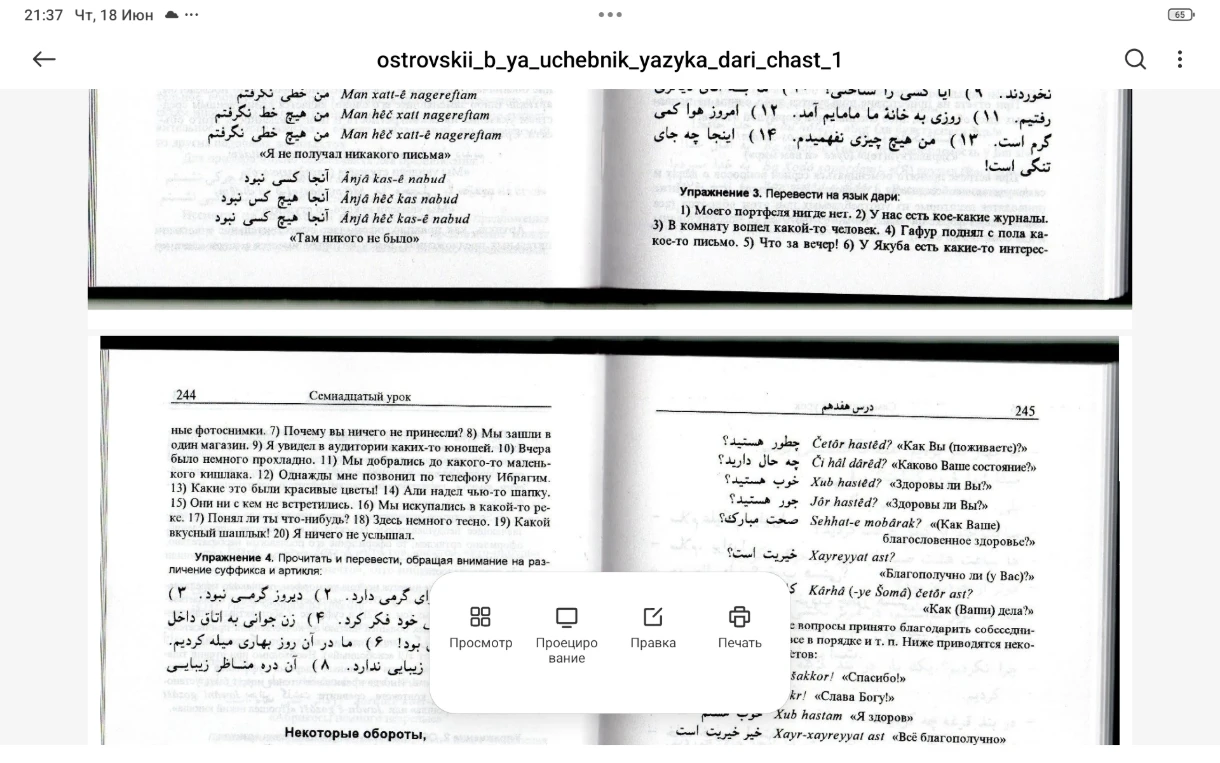 21:37 Чт, 18 Июн
65
ostrovskii_b_ya_uchebnik_yazyka_dari_chast_1
من خطی نگرفتم Man xatt-ê nagereftam
من هیچ خط نگرفتم Man hêč xatt nagereftam
من هیچ خطی نگرفتم Man hêč xatt-ê nagereftam
«Я не получал никакого письма»
آنجا کسی نبود Ânjâ kas-ê nabud
آنجا هیچ کس نبود Ânjâ hêč kas nabud
آنجا هیچ کسی نبود Ânjâ hêč kas-ê nabud
«Там никого не было»
نخوردند. ۹) آیا کسی را شناختی؟
رفتیم. ۱۱) روزی به خانهٔ ما مامایم آمد. ۱۲) امروز هوا کمی
گرم است. ۱۳) من هیچ چیزی نفهمیدم. ۱۴) اینجا چه جای
تنگی است!
Упражнение 3. Перевести на язык дари:
1) Моего портфеля нигде нет. 2) У нас есть кое-какие журналы.
3) В комнату вошел какой-то человек. 4) Гафур поднял с пола ка-
кое-то письмо. 5) Что за вечер! 6) У Якуба есть какие-то интерес-
244 Семнадцатый урок
ные фотоснимки. 7) Почему вы ничего не принесли? 8) Мы зашли в
один магазин. 9) Я увидел в аудитории каких-то юношей. 10) Вчера
было немного прохладно. 11) Мы добрались до какого-то малень-
кого кишлака. 12) Однажды мне позвонил по телефону Ибрагим.
13) Какие это были красивые цветы! 14) Али надел чью-то шапку.
15) Они ни с кем не встретились. 16) Мы искупались в какой-то ре-
ке. 17) Понял ли ты что-нибудь? 18) Здесь немного тесно. 19) Какой
вкусный шашлык! 20) Я ничего не услышал.
Упражнение 4. Прочитать и перевести, обращая внимание на раз-
личение суффикса и артикля:
گرمی دارد. ۲) دیروز گرمی نبود. ۳)
خود فکر کرد. ۴) زن جوانی به اتاق داخل
بود! ۶) ما در آن روز بهاری میله کردیم.
زیبایی ندارد. ۸) آن دره مناظر زیبایی
Некоторые обороты,
درس هفدهم 245
چطور هستید؟ Četôr hastêd? «Как Вы (поживаете)?»
چه حال دارید؟ Či hâl dârêd? «Каково Ваше состояние?»
خوب هستید؟ Xub hastêd? «Здоровы ли Вы?»
جور هستید؟ Jôr hastêd? «Здоровы ли Вы?»
صحت مبارک؟ Sehhat-e mobârak? «(Как Ваше)
благословенное здоровье?»
خیریت است؟ Xayreyyat ast?
«Благополучно ли (у Вас)?»
Kârhâ (-ye Šomâ) četôr ast?
«Как (Ваши) дела?»
вопросы принято благодарить собеседни-
все в порядке и т. п. Ниже приводятся неко-
«Спасибо!»
«Слава Богу!»
خوب هستم Xub hastam «Я здоров»
خیر خیریت است Xayr-xayreyyat ast «Всё благополучно»
Просмотр
Проециро
вание
Правка
Печать